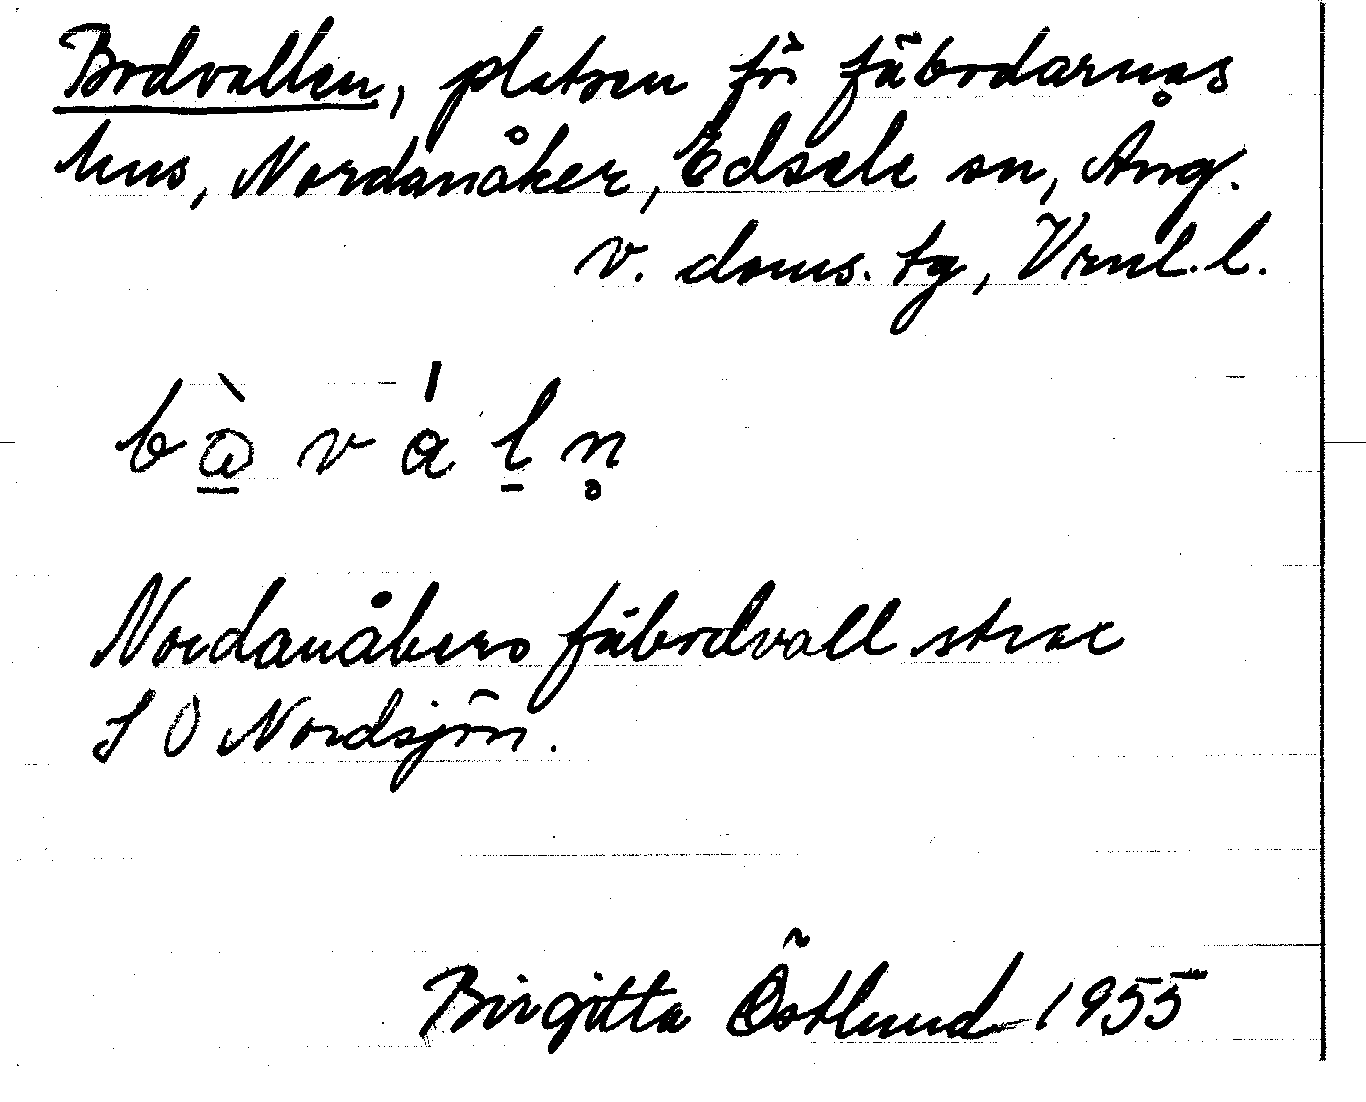 Bodvallen, platsen för fäbodarnas
hus, Nordanåker, Edsele sn, Ång.
v. doms. tg, Vrnl. l.
Nordanåkers fäbodvall strax
S O Nordsjön.
Birgitta Östlund 1955